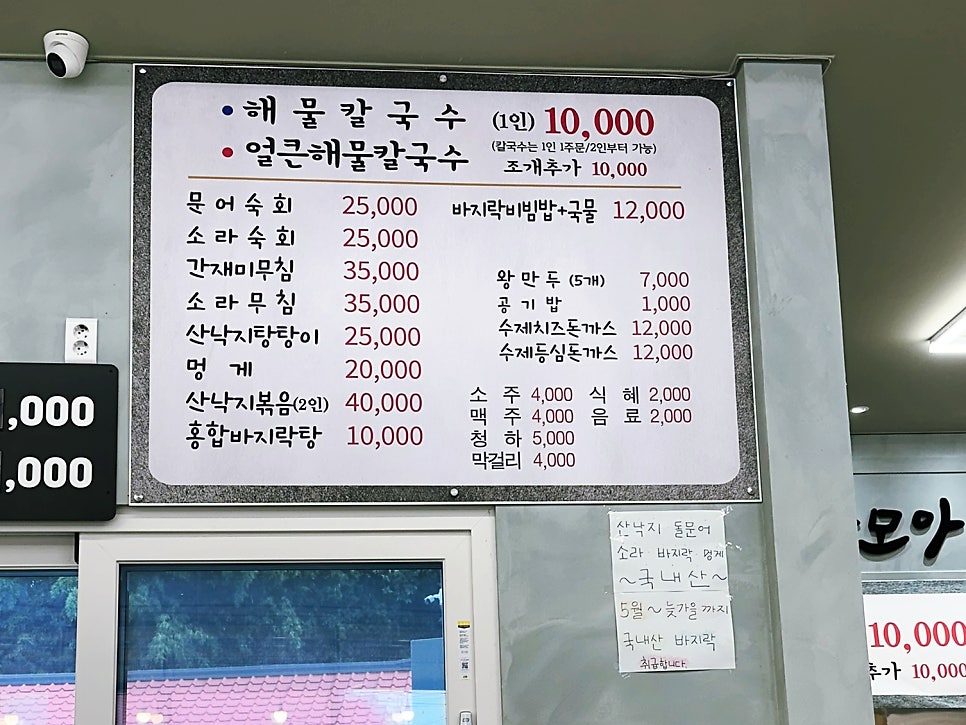 해물칼국수 (1인) 10,000
얼큰해물칼국수 (칼국수는 1인 1주문/2인부터 가능)
조개추가 10,000
문어숙회 25,000
소라숙회 25,000
간재미무침 35,000
소라무침 35,000
산낙지탕탕이 25,000
멍게 20,000
산낙지볶음(2인) 40,000
홍합바지락탕 10,000
바지락비빔밥+국물 12,000
왕만두 (5개) 7,000
공기밥 1,000
수제치즈돈까스 12,000
수제등심돈까스 12,000
소주 4,000 식혜 2,000
맥주 4,000 음료 2,000
청하 5,000
막걸리 4,000
,000
,000
산낙지 돌문어
소라 바지락 멍게
~국내산~
5월~늦가을까지
국내산 바지락
취급합니다.
모아
10,000
추가 10,000